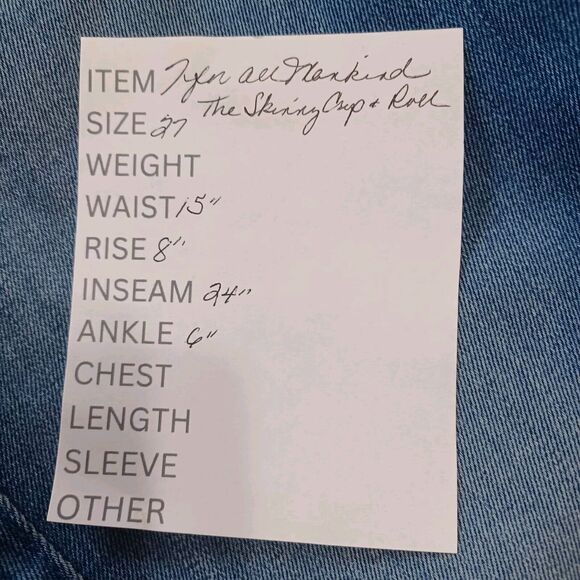 ITEM 7 for all Mankind
The Skinny Crop & Roll
SIZE 27
WEIGHT
WAIST 15"
RISE 8"
INSEAM 24"
ANKLE 6"
CHEST
LENGTH
SLEEVE
OTHER